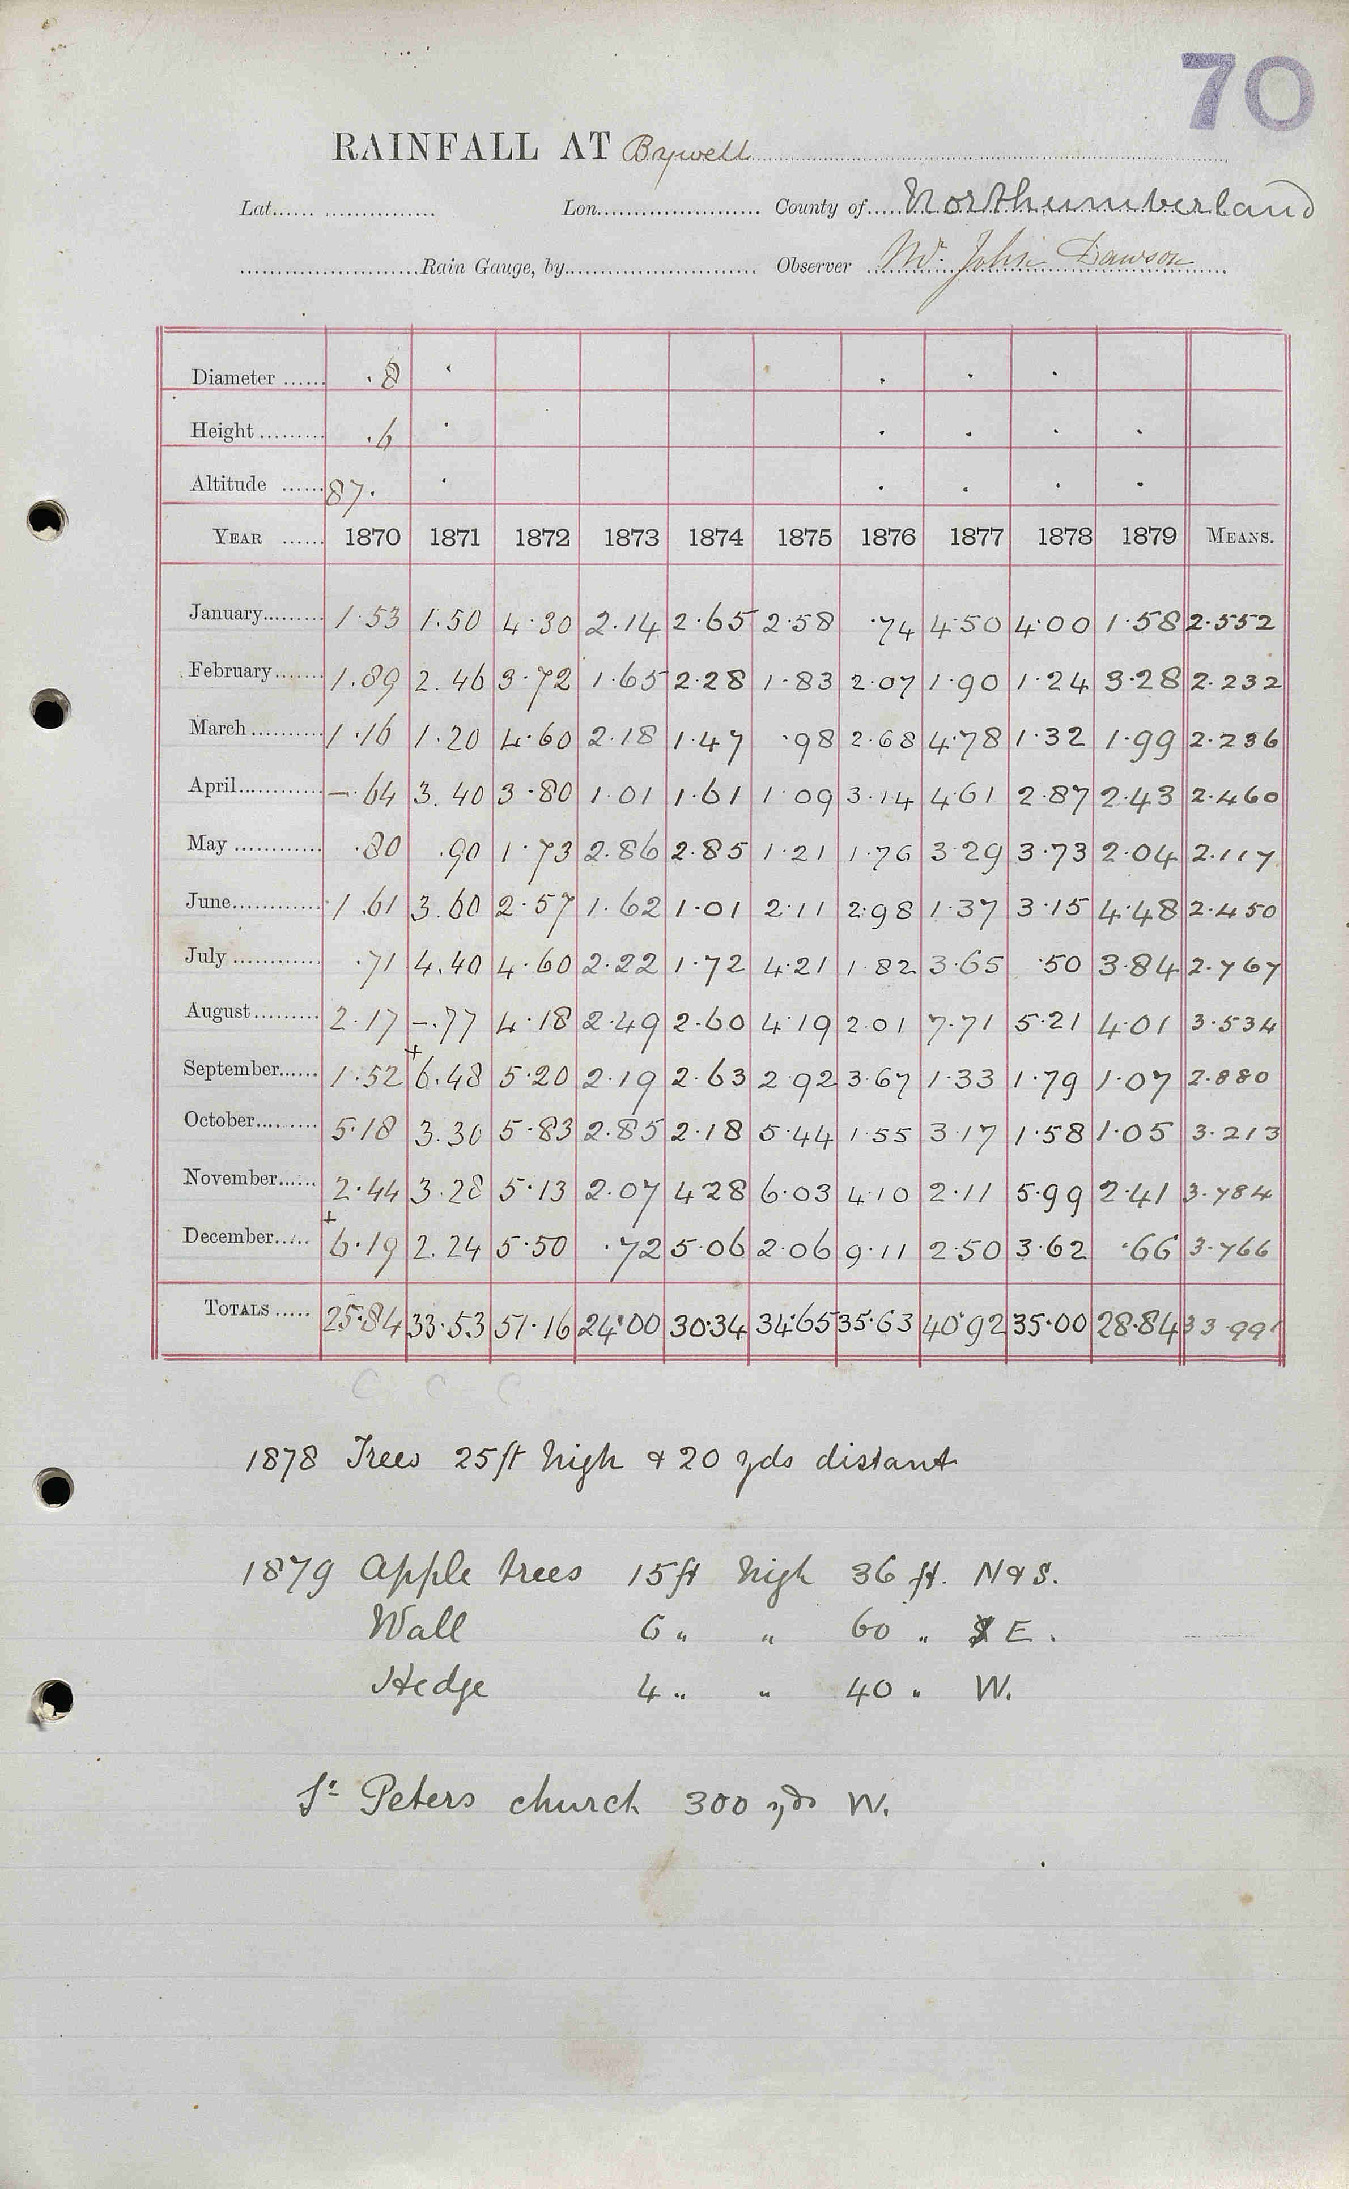 70
RAINFALL AT Bywell
Lat. Lon. County of Northumberland
Rain Gauge, by Observer Mr. John Dawson
Diameter .8
Height .6
Altitude 87.
YEAR 1870 1871 1872 1873 1874 1875 1876 1877 1878 1879 MEANS.
January 1.53 1.50 4.30 2.14 2.65 2.58 .74 4.50 4.00 1.58 2.552
February 1.89 2.46 3.72 1.65 2.28 1.83 2.07 1.90 1.24 3.28 2.232
March 1.16 1.20 4.60 2.18 1.47 .98 2.68 4.78 1.32 1.99 2.236
April –.64 3.40 3.80 1.01 1.61 1.09 3.14 4.61 2.87 2.43 2.460
May .80 .90 1.73 2.86 2.85 1.21 1.76 3.29 3.73 2.04 2.117
June 1.61 3.60 2.57 1.62 1.01 2.11 2.98 1.37 3.15 4.48 2.450
July .71 4.40 4.60 2.22 1.72 4.21 1.82 3.65 .50 3.84 2.767
August 2.17 –.77 4.18 2.49 2.60 4.19 2.01 7.71 5.21 4.01 3.534
September 1.52 +6.48 5.20 2.19 2.63 2.92 3.67 1.33 1.79 1.07 2.880
October 5.18 3.30 5.83 2.85 2.18 5.44 1.55 3.17 1.58 1.05 3.213
November 2.44 3.28 5.13 2.07 4.28 6.03 4.10 2.11 5.99 2.41 3.784
December +6.19 2.24 5.50 .72 5.06 2.06 9.11 2.50 3.62 .66 3.766
TOTALS 25.84 33.53 51.16 24.00 30.34 34.65 35.63 40.92 35.00 28.84 33.991
C C C
1878 Trees 25 ft high & 20 yds distant
1879 Apple trees 15 ft high 36 ft. N & S.
Wall 6 " " 60 " E.
Hedge 4 " " 40 " W.
St Peters church 300 yds W.